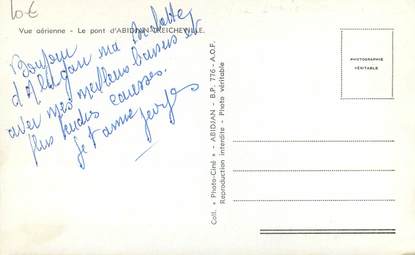 10 €
Vue aérienne - Le pont d'ABIDJAN-TREICHEVILLE.
Bonjour
d'Abidjan ma
avec mes meilleurs baisers et
plus tendres caresses.
Je t'aime
Coll. « Photo-Ciné » - ABIDJAN - B.P. 776 - A.O.F.
Reproduction interdite - Photo véritable
PHOTOGRAPHIE
VÉRITABLE